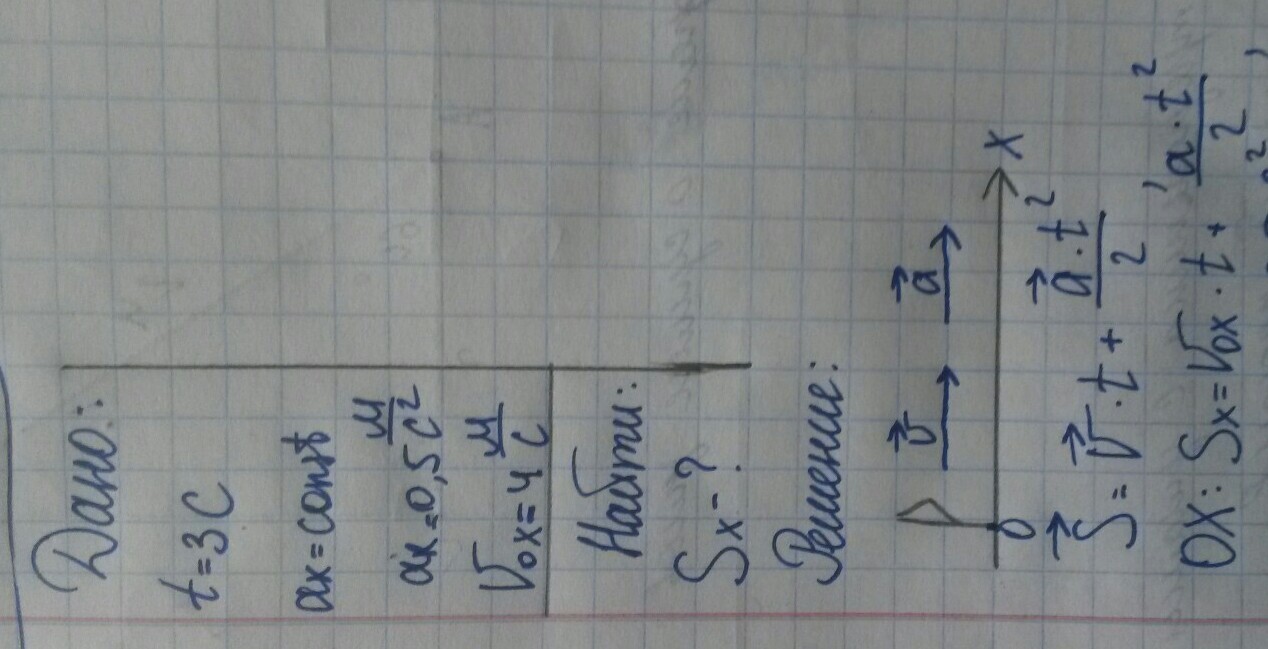 Дано:
t = 3 С
ax = const
ax = 0,5 м/с²
V₀x = 4 м/с
Найти:
Sx - ?
Решение:
V⃗ a⃗
0 X
S⃗ = V⃗ · t + a⃗ · t² / 2
OX: Sx = V₀x · t + a · t² / 2